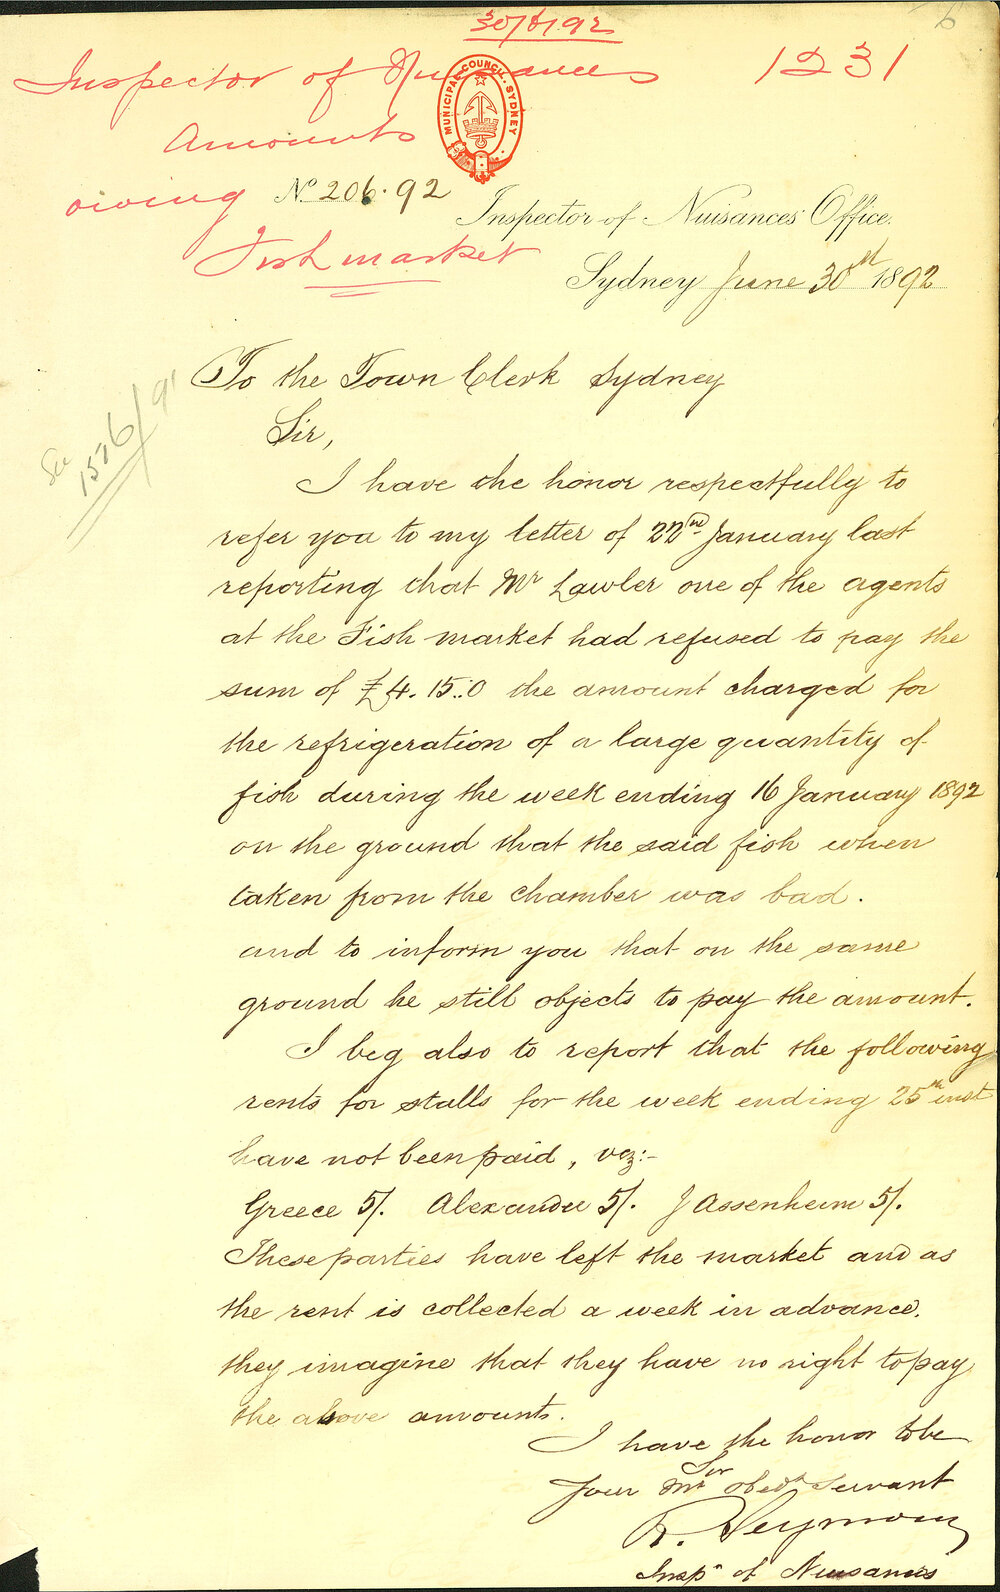 30/6/92
6
Inspector of Nuisances 1231
MUNICIPAL COUNCIL SYDNEY
Amounts
owing No. 206.92
Inspector of Nuisances' Office.
Fish market
Sydney June 30th 1892
See 1576/9
To the Town Clerk Sydney
Sir,
I have the honor respectfully to
refer you to my letter of 22nd January last
reporting that Mr Lawler one of the agents
at the Fish market had refused to pay the
sum of £4.15.0 the amount charged for
the refrigeration of a large quantity of
fish during the week ending 16 January 1892
on the ground that the said fish when
taken from the chamber was bad.
and to inform you that on the same
ground he still objects to pay the amount.
I beg also to report that the following
rents for stalls for the week ending 25th inst
have not been paid, viz:-
Greece 5/. Alexander 5/. J Assenheim 5/.
These parties have left the market and as
the rent is collected a week in advance.
they imagine that they have no right to pay
the above amounts.
I have the honor to be
Sir
Your Mt obedt Servant
R. Seymour
Inspr of Nuisances